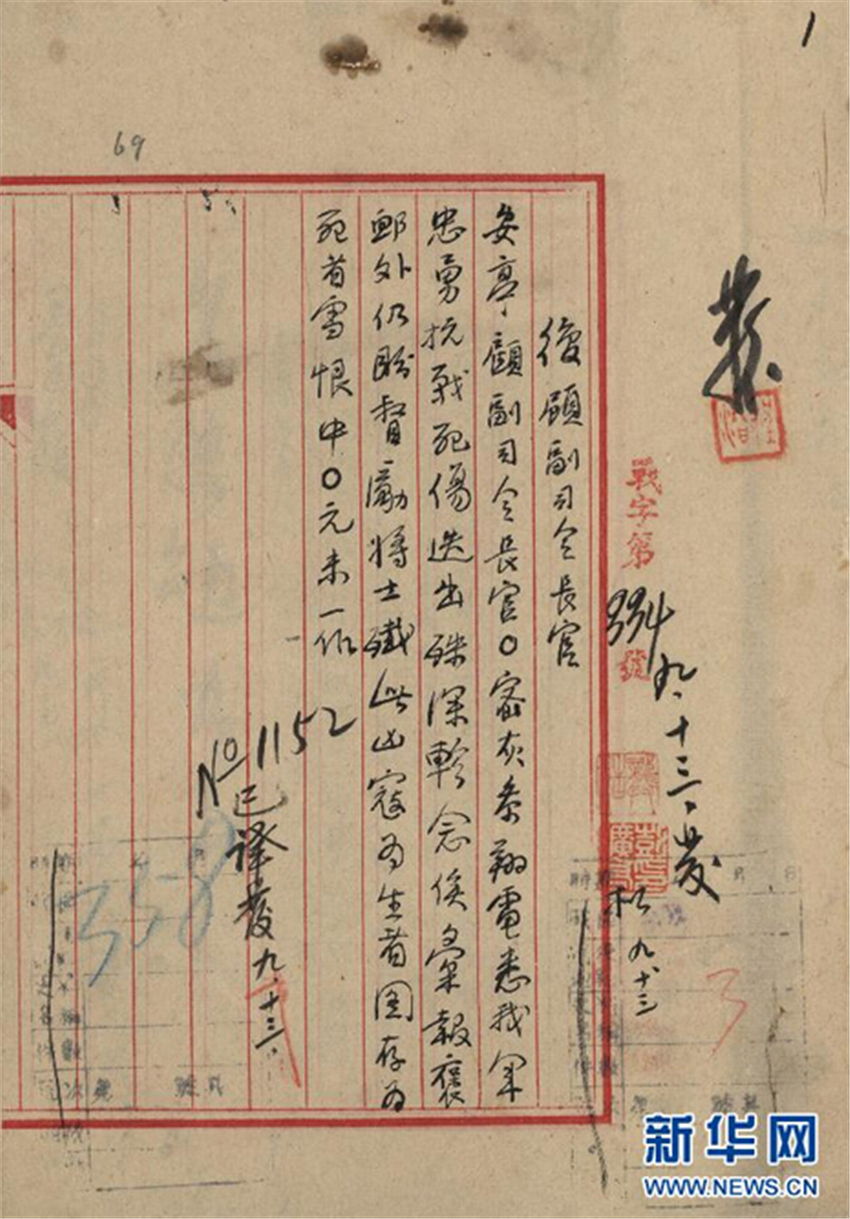 1
69
戰字第334號
九、十三、發
九、十三
復顧副司令長官
安亭顧副司令長官〇密灰參翔電悉我軍
忠勇抗戰死傷迭出殊深軫念俟彙報褒
卹外仍盼督勵將士殲此凶寇为生者圖存为
死者雪恨中〇元未一作
No 1152
已譯發九、十三、
358
3
新华网
WWW.NEWS.CN